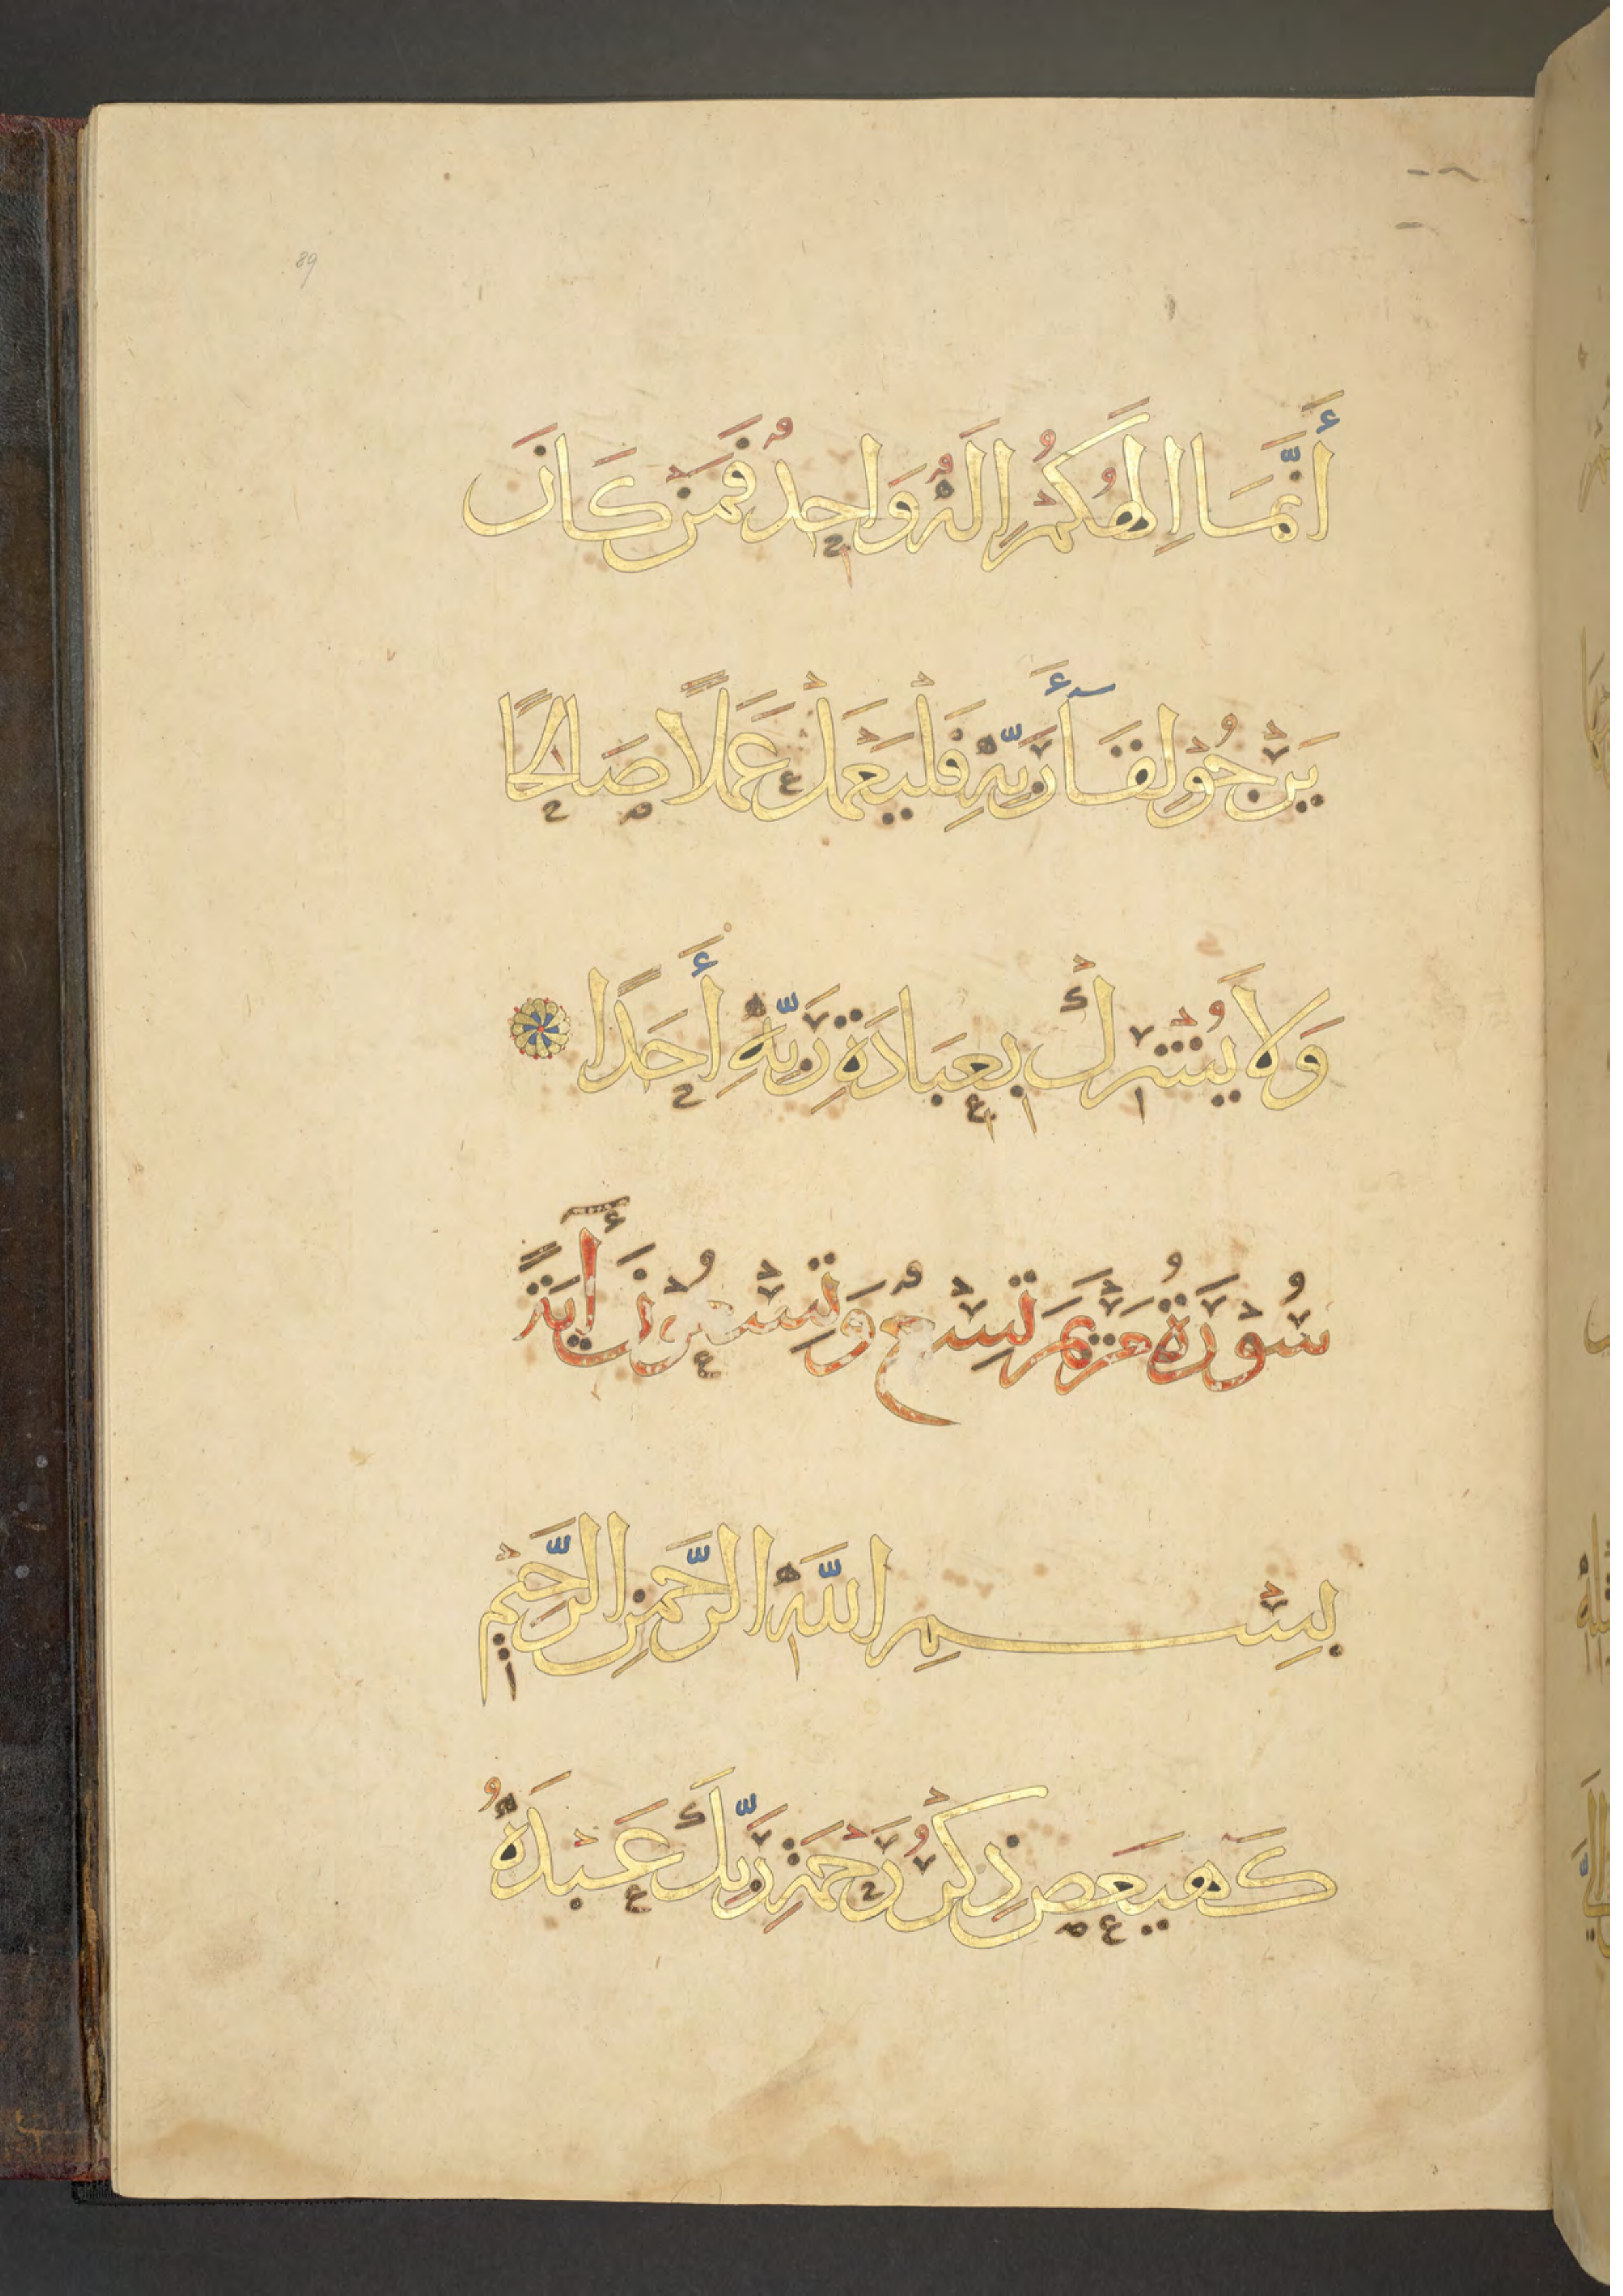 89
أَنَّمَا إِلَهُكُمْ إِلَهٌ وَاحِدٌ فَمَنْ كَانَ
يَرْجُوْ لِقَآءَ رَبِّهِ فَلْيَعْمَلْ عَمَلًا صَالِحًا
وَلَا يُشْرِكْ بِعِبَادَةِ رَبِّهِ أَحَدًا
سُوْرَةُ مَرْيَمَ تِسْعٌ وَتِسْعُوْنَ أٰيَةً
بِسْمِ اللَّهِ الرَّحْمَنِ الرَّحِيْمِ
كَهيَعص ذِكْرُ رَحْمَةِ رَبِّكَ عَبْدَهُ